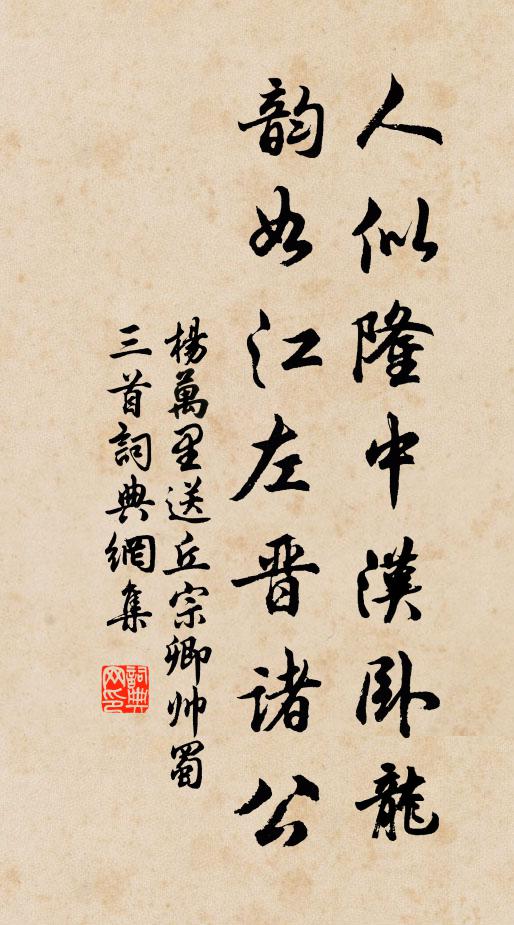 人似隆中漢臥龍
韵如江左晋諸公
楊萬里送丘宗卿帅蜀
三首詞典網集
詞典网印